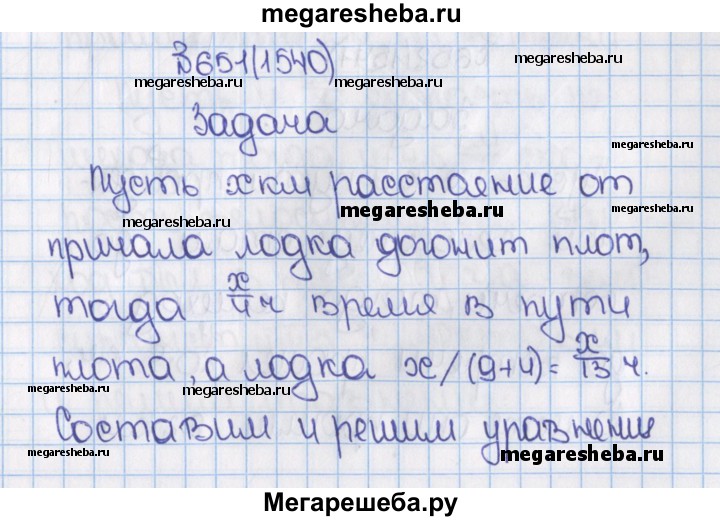 megaresheba.ru
В 651(1540)
megaresheba.ru megaresheba.ru megaresheba.ru
Задача
megaresheba.ru
Пусть x км расстаяние от
megaresheba.ru megaresheba.ru
причала лодка догонит плот,
тогда x/4 ч время в пути
плота, а лодка x/(9+4)=x/13 ч.
megaresheba.ru megaresheba.ru
Составим и решим уравнения
megaresheba.ru megaresheba.ru
Мегарешеба.ру